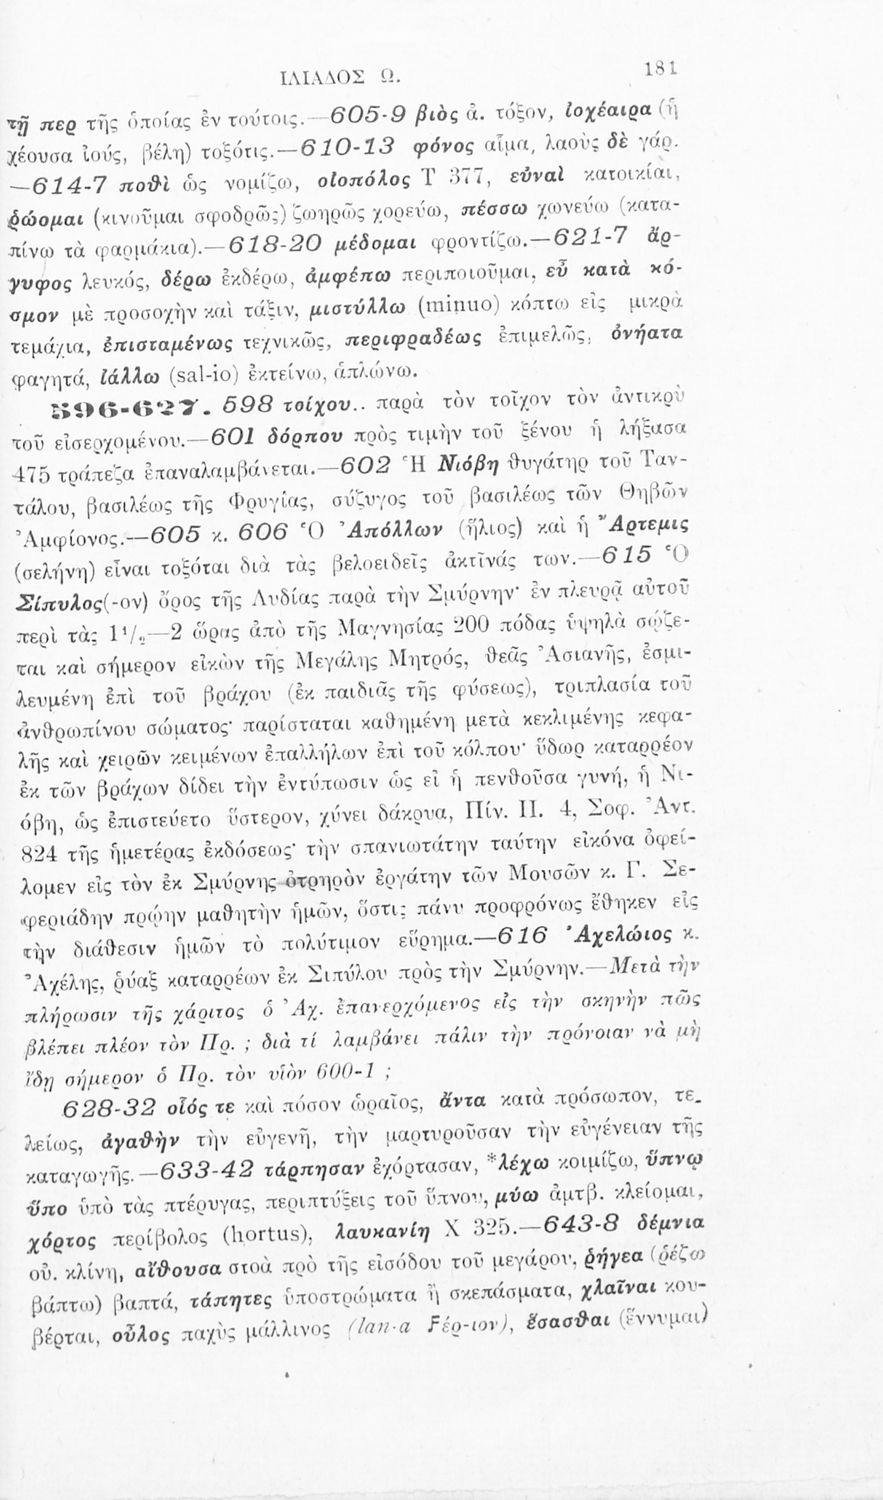 ΙΛΙΑΔΟΣ Ω. 181
τῇ περ τῆς ὁποίας ἐν τούτοις.—605-9 βιὸς ἀ. τόξον, ἰοχέαιρα (ἡ
χέουσα ἰούς, βέλη) τοξότις.—610-13 φόνος αἷμα, λαοὺς δὲ γάρ.
—614-7 ποθὶ ὡς νομίζω, οἰοπόλος Τ 377, εὐναὶ κατοικίαι,
ῥώομαι (κινοῦμαι σφοδρῶς) ζωηρῶς χορεύω, πέσσω χωνεύω (κατα-
πίνω τὰ φαρμάκια).—618-20 μέδομαι φροντίζω.—621-7 ἄρ-
γυφος λευκός, δέρω ἐκδέρω, ἀμφέπω περιποιοῦμαι, εὖ κατὰ κό-
σμον μὲ προσοχὴν καὶ τάξιν, μιστύλλω (minuo) κόπτω εἰς μικρὰ
τεμάχια, ἐπισταμένως τεχνικῶς, περιφραδέως ἐπιμελῶς, ὀνήατα
φαγητά, ἰάλλω (sal-io) ἐκτείνω, ἁπλώνω.
596-627. 598 τοίχου.. παρὰ τὸν τοῖχον τὸν ἀντικρὺ
τοῦ εἰσερχομένου.—601 δόρπου πρὸς τιμὴν τοῦ ξένου ἡ λήξασα
475 τράπεζα ἐπαναλαμβάνεται.—602 Ἡ Νιόβη θυγάτηρ τοῦ Ταν-
τάλου, βασιλέως τῆς Φρυγίας, σύζυγος τοῦ βασιλέως τῶν Θηβῶν
Ἀμφίονος.—605 κ. 606 Ὁ Ἀπόλλων (ἥλιος) καὶ ἡ Ἄρτεμις
(σελήνη) εἶναι τοξόται διὰ τὰς βελοειδεῖς ἀκτῖνάς των.—615 Ὁ
Σίπυλος(-ον) ὄρος τῆς Λυδίας παρὰ τὴν Σμύρνην· ἐν πλευρᾷ αὐτοῦ
περὶ τὰς 1¹/₂—2 ὥρας ἀπὸ τῆς Μαγνησίας 200 πόδας ὑψηλὰ σῴζε-
ται καὶ σήμερον εἰκὼν τῆς Μεγάλης Μητρός, θεᾶς Ἀσιανῆς, ἐσμι-
λευμένη ἐπὶ τοῦ βράχου (ἐκ παιδιᾶς τῆς φύσεως), τριπλασία τοῦ
ἀνθρωπίνου σώματος· παρίσταται καθημένη μετὰ κεκλιμένης κεφα-
λῆς καὶ χειρῶν κειμένων ἐπαλλήλων ἐπὶ τοῦ κόλπου· ὕδωρ καταρρέον
ἐκ τῶν βράχων δίδει τὴν ἐντύπωσιν ὡς εἰ ἡ πενθοῦσα γυνή, ἡ Νι-
όβη, ὡς ἐπιστεύετο ὕστερον, χύνει δάκρυα, Πίν. ΙΙ. 4, Σοφ. Ἀντ.
824 τῆς ἡμετέρας ἐκδόσεως· τὴν σπανιωτάτην ταύτην εἰκόνα ὀφεί-
λομεν εἰς τὸν ἐκ Σμύρνης ὀτρηρὸν ἐργάτην τῶν Μουσῶν κ. Γ. Σε-
φεριάδην πρῴην μαθητὴν ἡμῶν, ὅστις πάνυ προφρόνως ἔθηκεν εἰς
τὴν διάθεσιν ἡμῶν τὸ πολύτιμον εὕρημα.—616 Ἀχελώιος κ.
Ἀχέλης, ῥύαξ καταρρέων ἐκ Σιπύλου πρὸς τὴν Σμύρνην.—Μετὰ τὴν
πλήρωσιν τῆς χάριτος ὁ Ἀχ. ἐπανερχόμενος εἰς τὴν σκηνὴν πῶς
βλέπει πλέον τὸν Πρ. ; διὰ τί λαμβάνει πάλιν τὴν πρόνοιαν νὰ μὴ
ἴδῃ σήμερον ὁ Πρ. τὸν υἱὸν 600-1 ;
628-32 οἷός τε καὶ πόσον ὡραῖος, ἄντα κατὰ πρόσωπον, τε-
λείως, ἀγαθὴν τὴν εὐγενῆ, τὴν μαρτυροῦσαν τὴν εὐγένειαν τῆς
καταγωγῆς.—633-42 τάρπησαν ἐχόρτασαν, *λέχω κοιμίζω, ὕπνῳ
ὕπο ὑπὸ τὰς πτέρυγας, περιπτύξεις τοῦ ὕπνου, μύω ἀμτβ. κλείομαι,
χόρτος περίβολος (hortus), λαυκανίη Χ 325.—643-8 δέμνια
οὐ. κλίνη, αἴθουσα στοὰ πρὸ τῆς εἰσόδου τοῦ μεγάρου, ῥήγεα (ῥέζω
βάπτω) βαπτά, τάπητες ὑποστρώματα ἢ σκεπάσματα, χλαῖναι κου-
βέρται, οὖλος παχὺς μάλλινος (lan-a Fέρ-ιον), ἕσασθαι (ἕννυμαι)